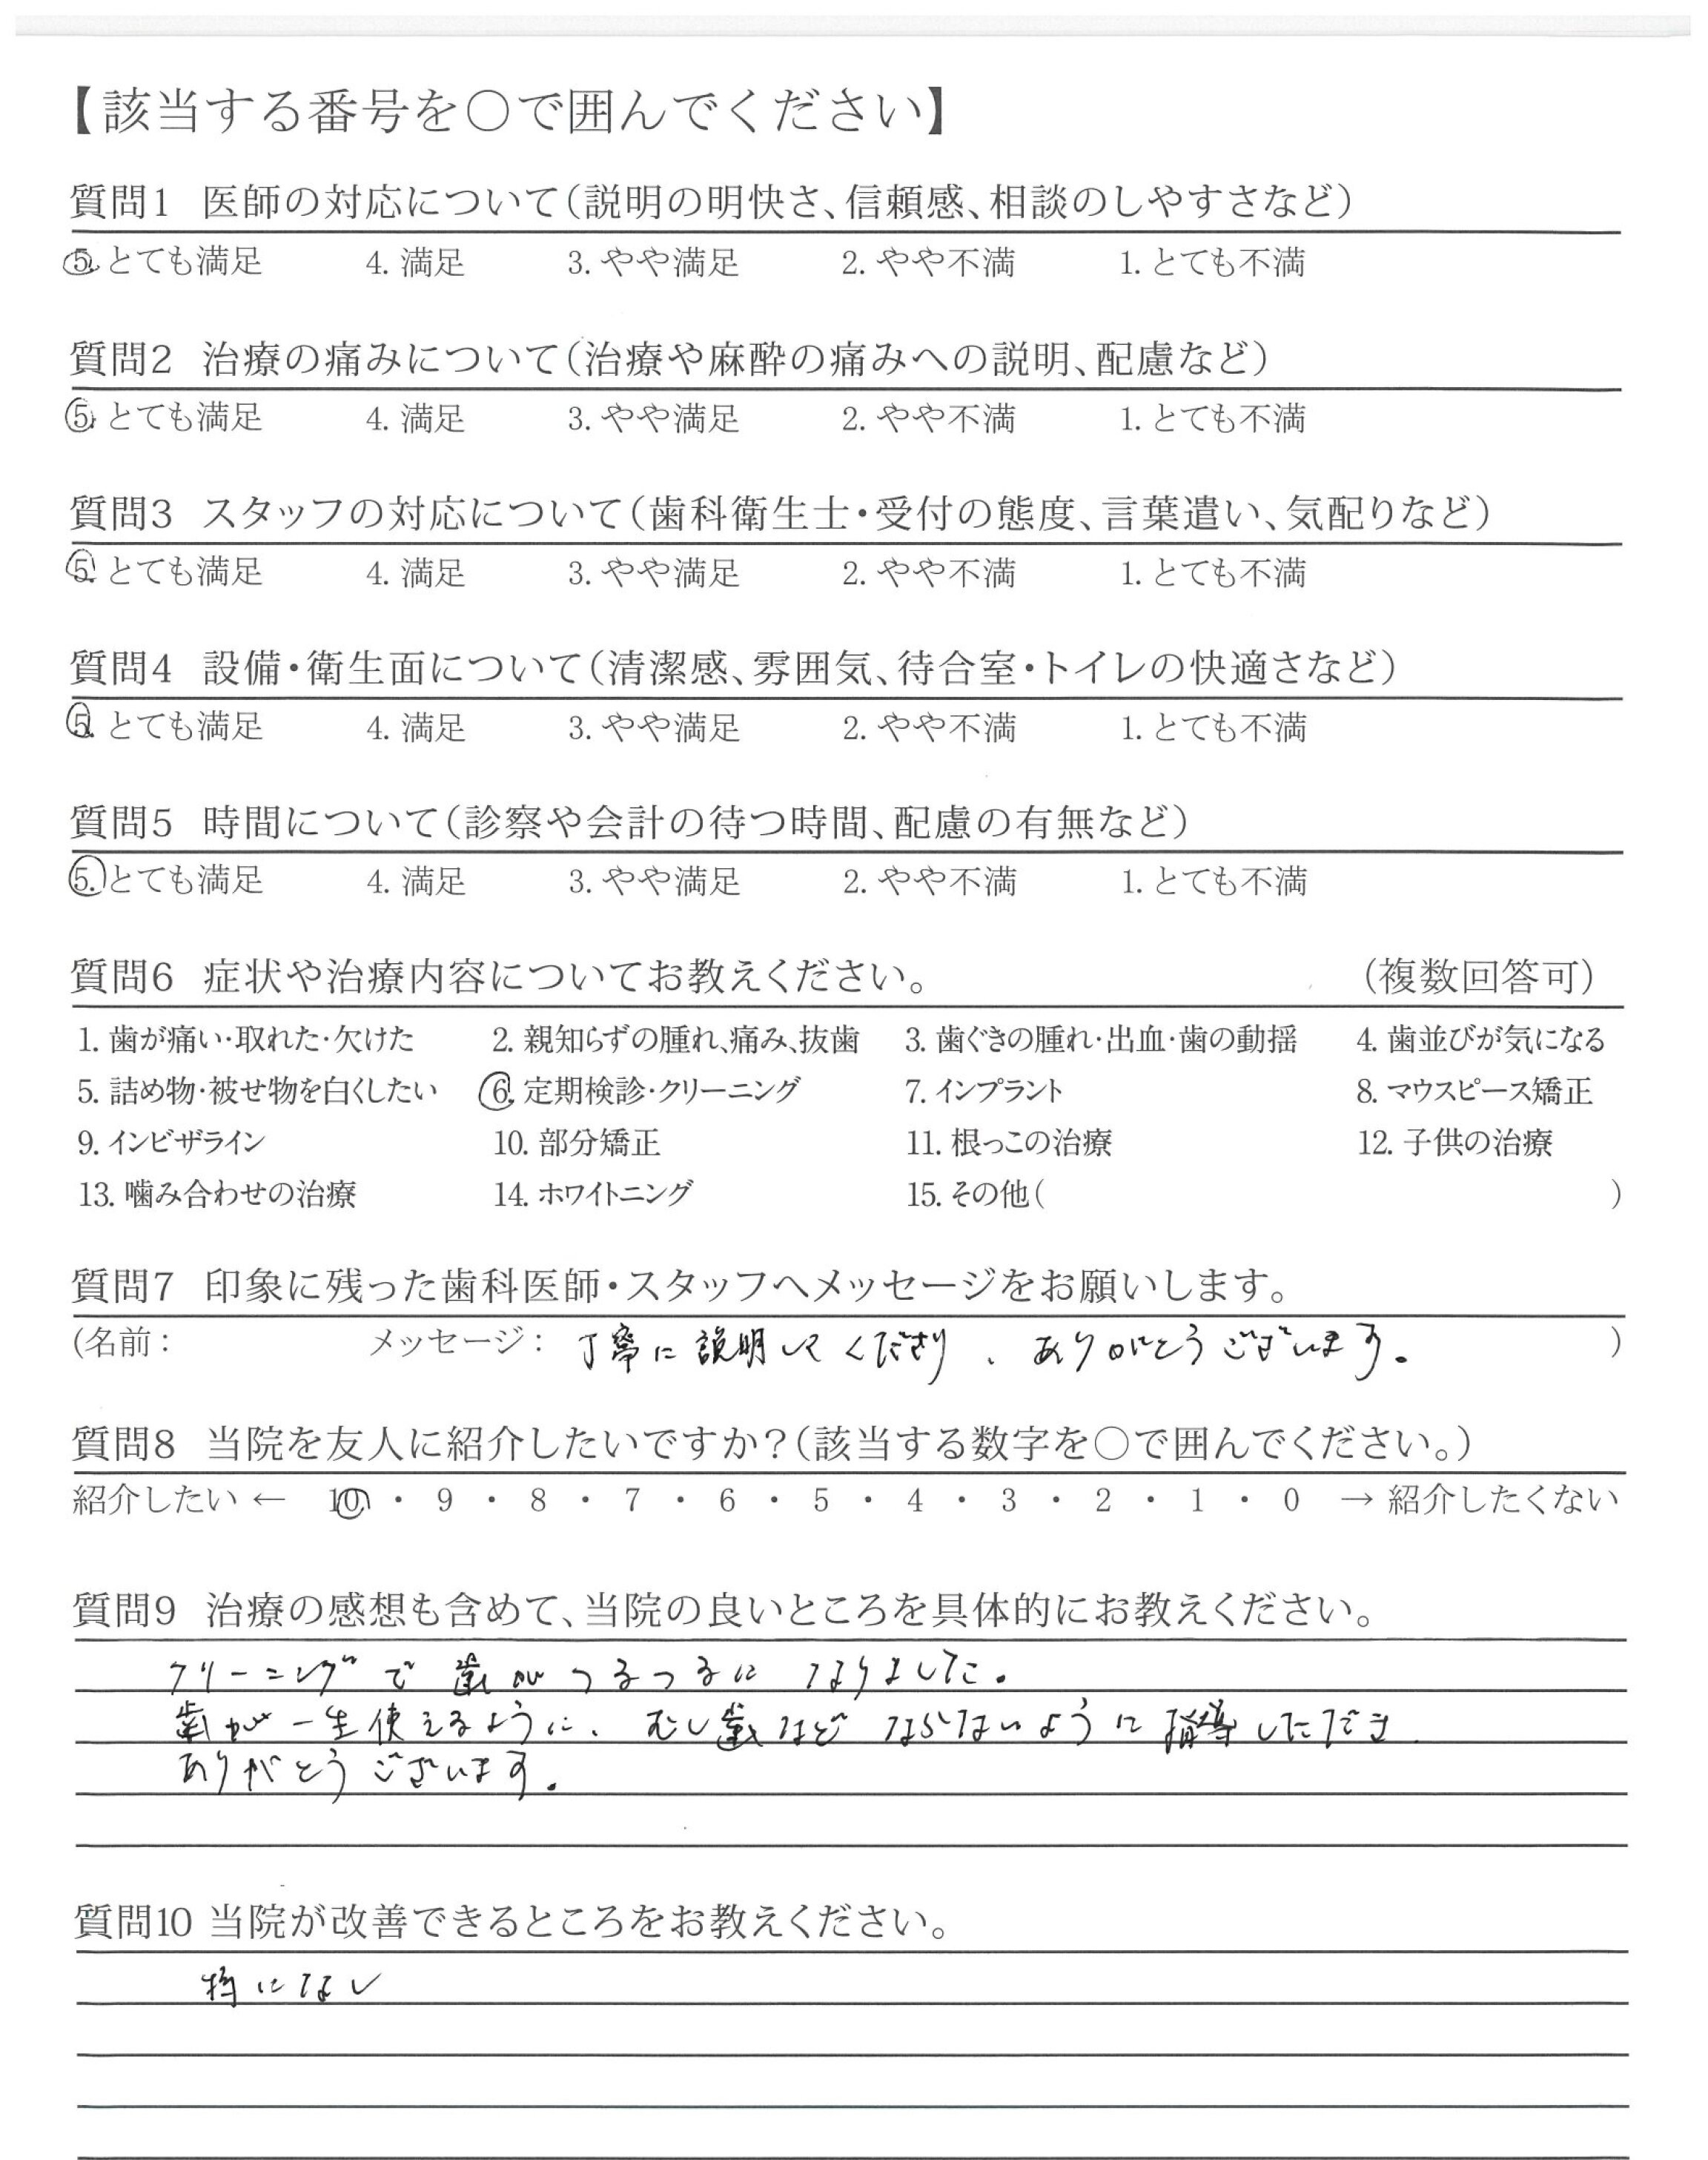 【該当する番号を○で囲んでください】
質問1 医師の対応について(説明の明快さ、信頼感、相談のしやすさなど)
5. とても満足 4. 満足 3. やや満足 2. やや不満 1. とても不満
質問2 治療の痛みについて(治療や麻酔の痛みへの説明、配慮など)
5. とても満足 4. 満足 3. やや満足 2. やや不満 1. とても不満
質問3 スタッフの対応について(歯科衛生士・受付の態度、言葉遣い、気配りなど)
5. とても満足 4. 満足 3. やや満足 2. やや不満 1. とても不満
質問4 設備・衛生面について(清潔感、雰囲気、待合室・トイレの快適さなど)
5. とても満足 4. 満足 3. やや満足 2. やや不満 1. とても不満
質問5 時間について(診察や会計の待つ時間、配慮の有無など)
5. とても満足 4. 満足 3. やや満足 2. やや不満 1. とても不満
質問6 症状や治療内容についてお教えください。 (複数回答可)
1. 歯が痛い・取れた・欠けた 2. 親知らずの腫れ、痛み、抜歯 3. 歯ぐきの腫れ・出血・歯の動揺 4. 歯並びが気になる
5. 詰め物・被せ物を白くしたい 6. 定期検診・クリーニング 7. インプラント 8. マウスピース矯正
9. インビザライン 10. 部分矯正 11. 根っこの治療 12. 子供の治療
13. 噛み合わせの治療 14. ホワイトニング 15. その他( )
質問7 印象に残った歯科医師・スタッフへメッセージをお願いします。
(名前: メッセージ: 丁寧に説明してくださり、ありがとうございます。 )
質問8 当院を友人に紹介したいですか?(該当する数字を○で囲んでください。)
紹介したい ← 10 ・ 9 ・ 8 ・ 7 ・ 6 ・ 5 ・ 4 ・ 3 ・ 2 ・ 1 ・ 0 → 紹介したくない
質問9 治療の感想も含めて、当院の良いところを具体的にお教えください。
クリーニングで歯がつるつるになりました。
歯が一生使えるように、むし歯などならないように指導しただき
ありがとうございます。
質問10 当院が改善できるところをお教えください。
特になし